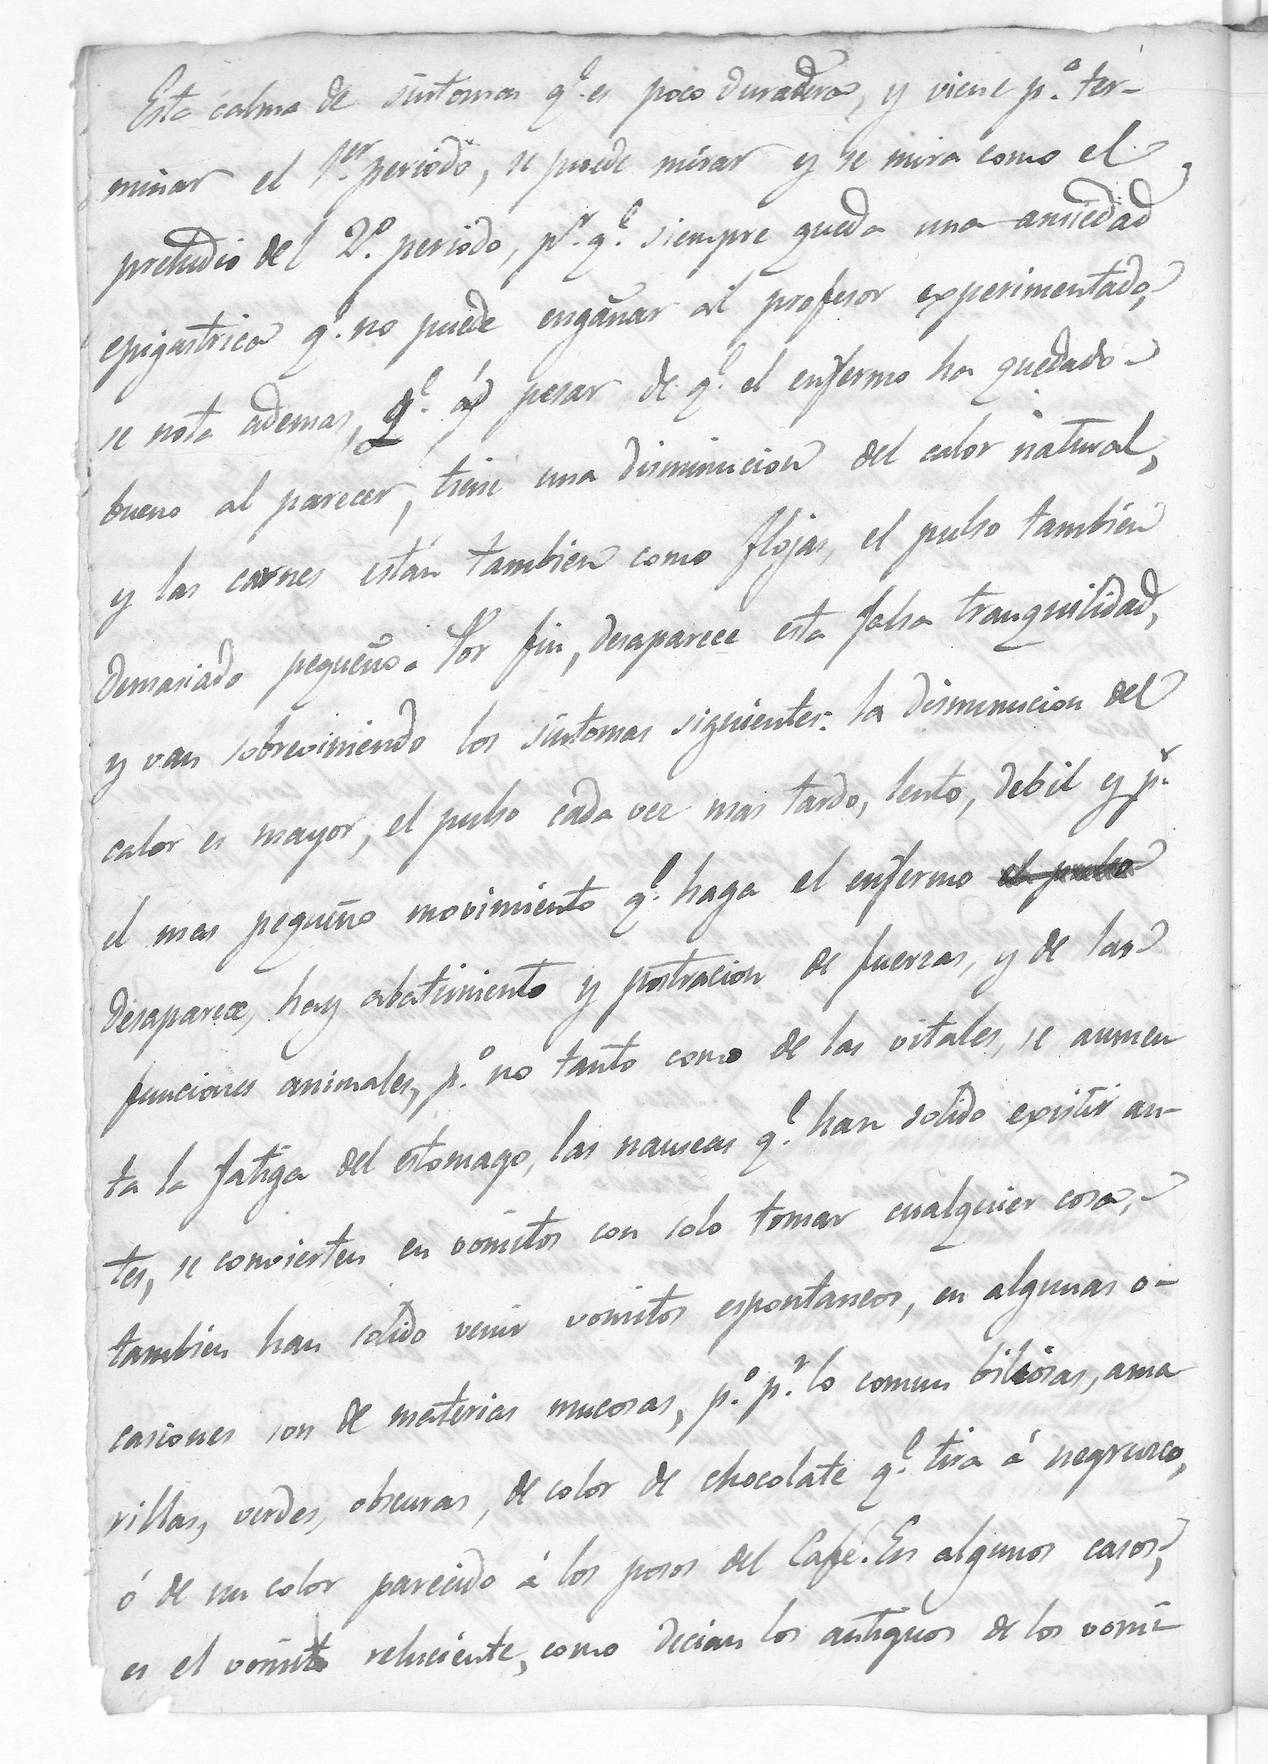 Esta calma de sintomas q.e es poco duradera, y viene p.a ter-
minar el 1.er periodo, se puede mirar y se mira como el
preludio del 2.o periodo, p.r q.e siempre queda una ansiedad
epigastrica q.e no puede engañar al profesor experimentado,
se nota ademas, q.e á pesar de q.e el enfermo ha quedado
bueno al parecer, tiene una disminucion del calor natural,
y las carnes están tambien como flojas, el pulso tambien
demasiado pequeño. Por fin, desaparece esta falsa tranquilidad,
y van sobreviniendo los sintomas siguientes: la disminucion del
calor es mayor, el pulso cada vez mas tardo, lento, debil y p.r
el mas pequeño movimiento q.e haga el enfermo el pulso
desaparece, hay abatimiento y postracion de fuerzas, y de las
funciones animales, p.o no tanto como de las vitales, se aumen
ta la fatiga del estomago, las nauseas q.e han solido existir an-
tes, se convierten en vomitos con solo tomar cualquier cosa,
tambien han solido venir vomitos espontaneos, en algunas o-
casiones son de materias mucosas, p.o p.r lo comun biliosas, ama
rillas, verdes, obscuras, de color de chocolate q.e tira á negruzco,
ó de un color parecido á los posos del Café. En algunos casos,
es el vomito reluciente, como decian los antiguos de los vomi-